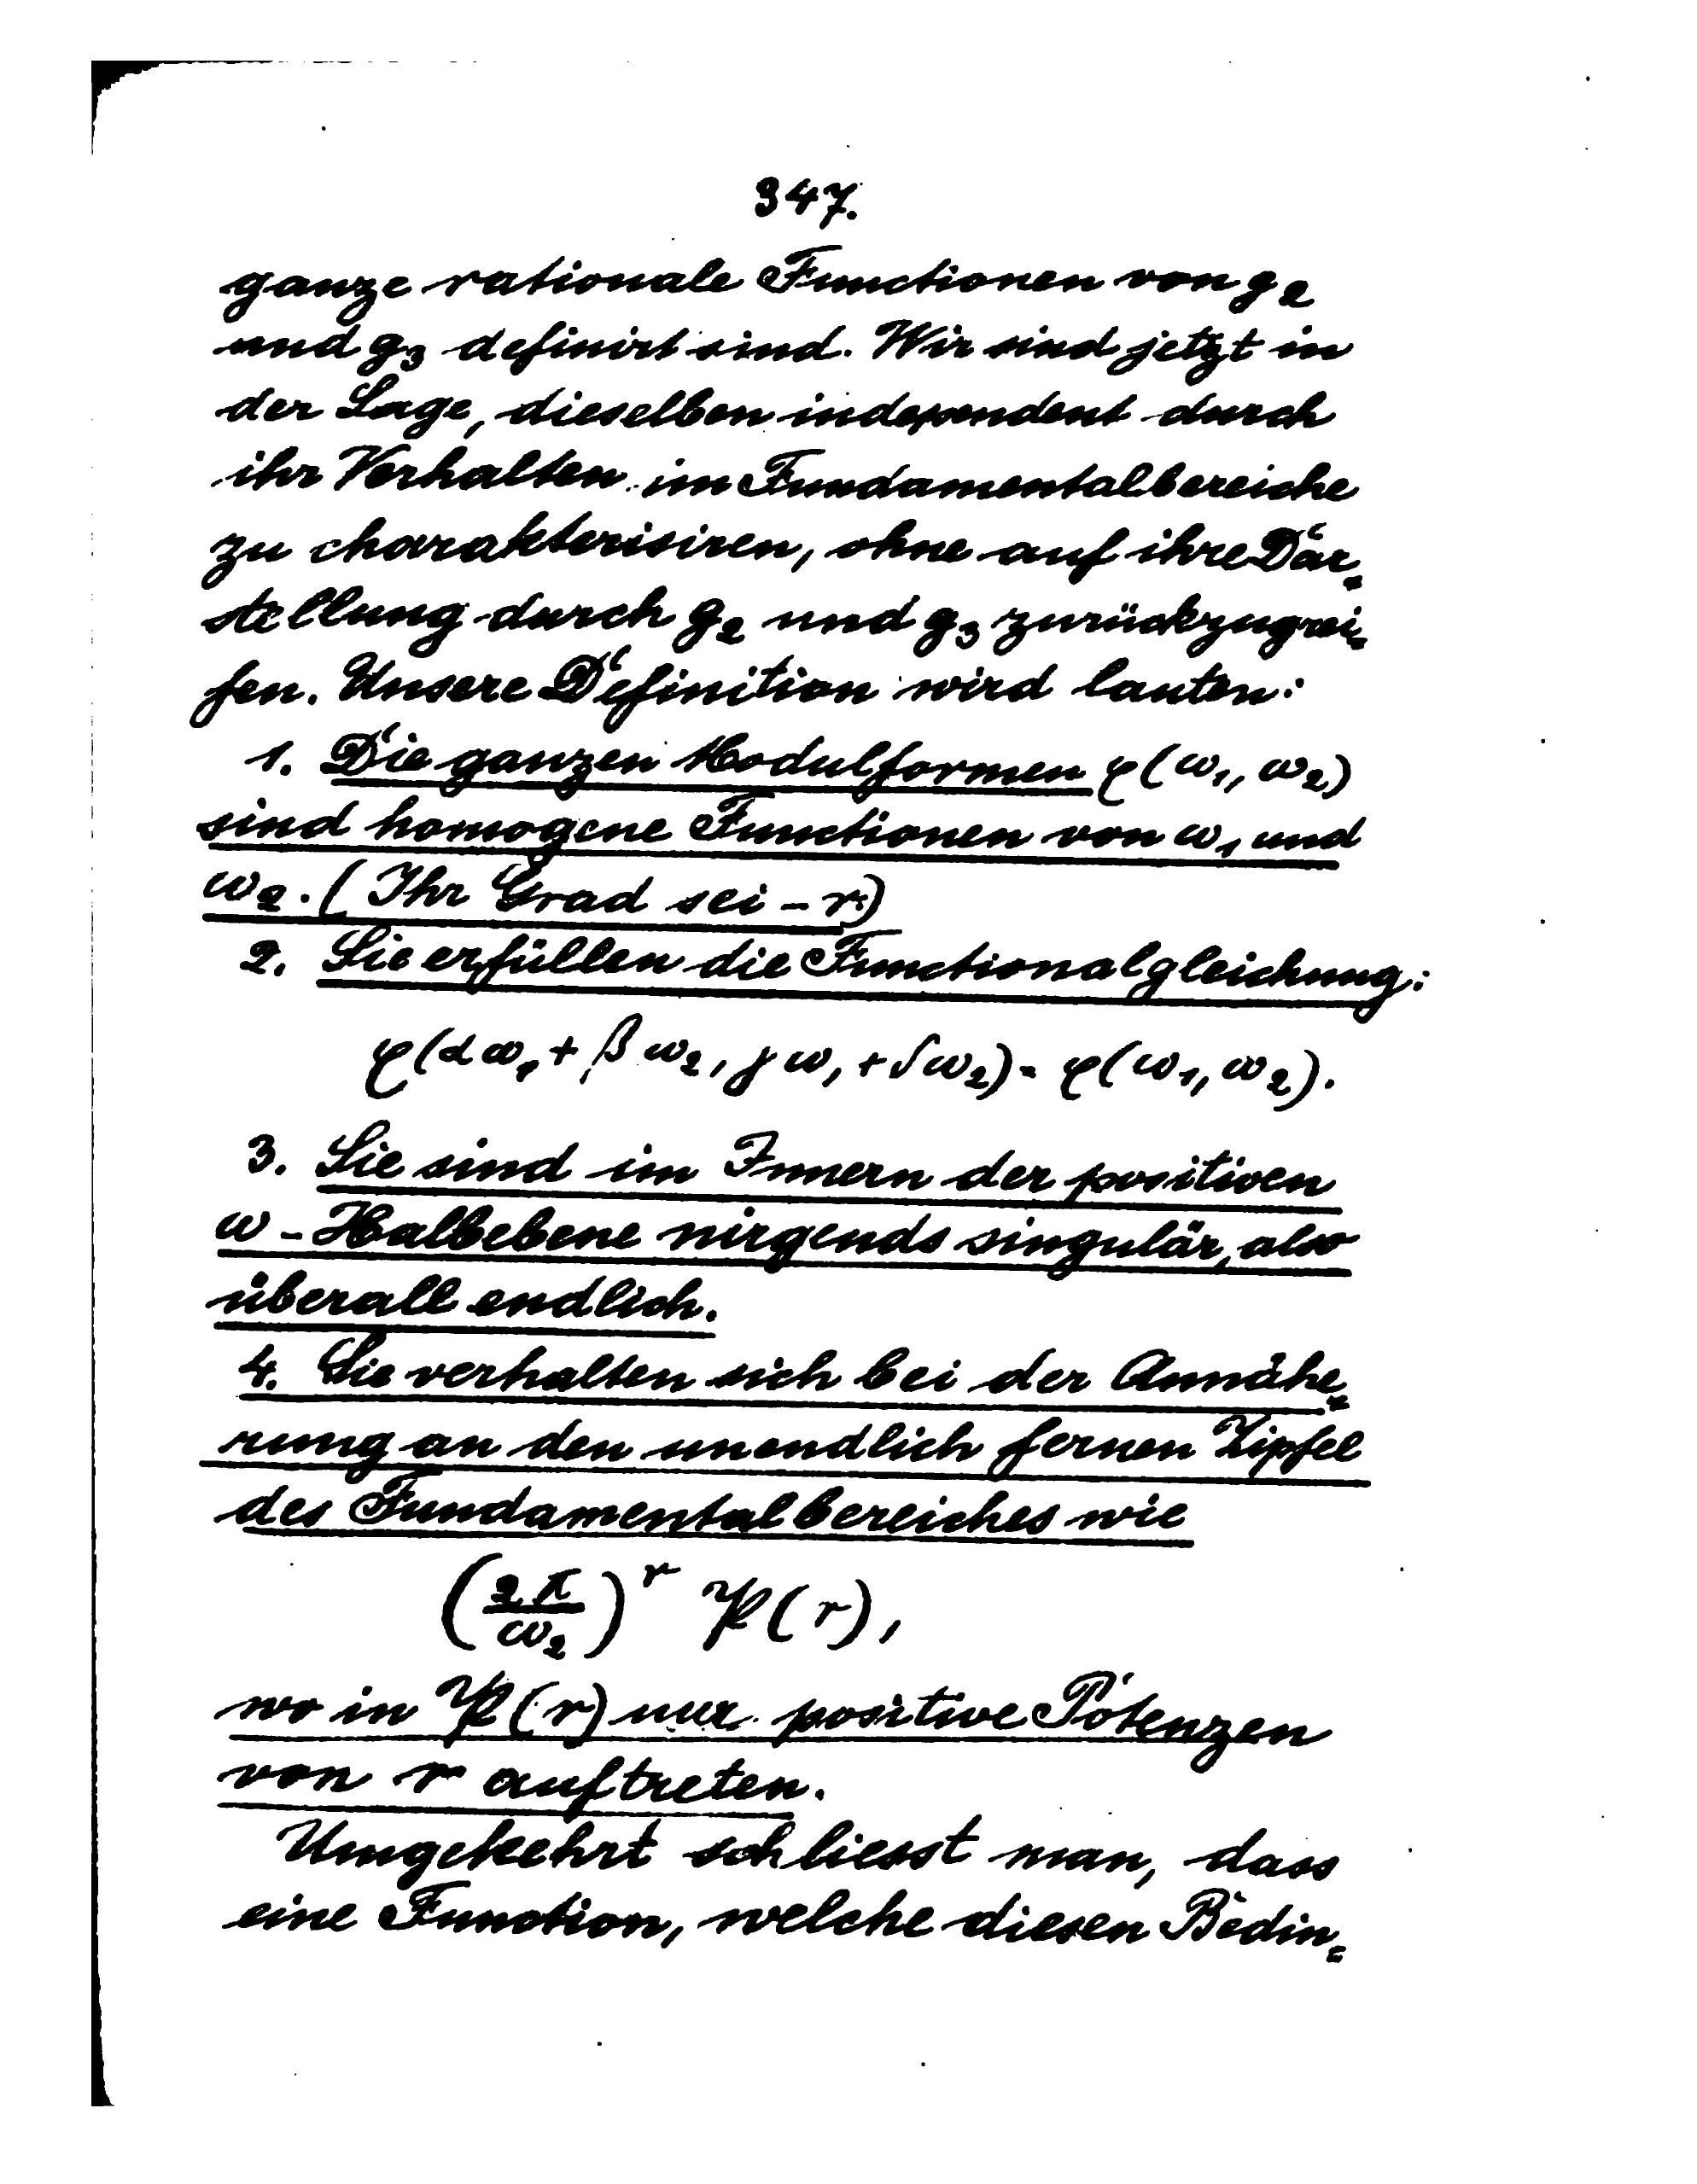 347.
ganze rationale Functionen von g₂
und g₃ definirt sind. Wir sind jetzt in
der Lage, dieselben independent durch
ihr Verhalten im Fundamentalbereiche
zu charakterisiren, ohne auf ihre Dar=
stellung durch g₂ und g₃ zurückzugrei=
fen. Unsere Definition wird lauten:
1. Die ganzen Modulformen φ(ω₁, ω₂)
sind homogene Functionen von ω₁ und
ω₂. (Ihr Grad sei – r)
2. Sie erfüllen die Functionalgleichung:
φ(αω₁ + βω₂, γω₁ + δω₂) = φ(ω₁, ω₂).
3. Sie sind im Innern der positiven
ω - Halbebene nirgends singulär, also
überall endlich.
4. Sie verhalten sich bei der Annähe=
rung an den unendlich fernen Zipfel
des Fundamentalbereiches wie
(2π/ω₂)^r 𝔓(r),
wo in 𝔓(r) nur positive Potenzen
von r auftreten.
Umgekehrt schliesst man, dass
eine Function, welche diesen Bedin=